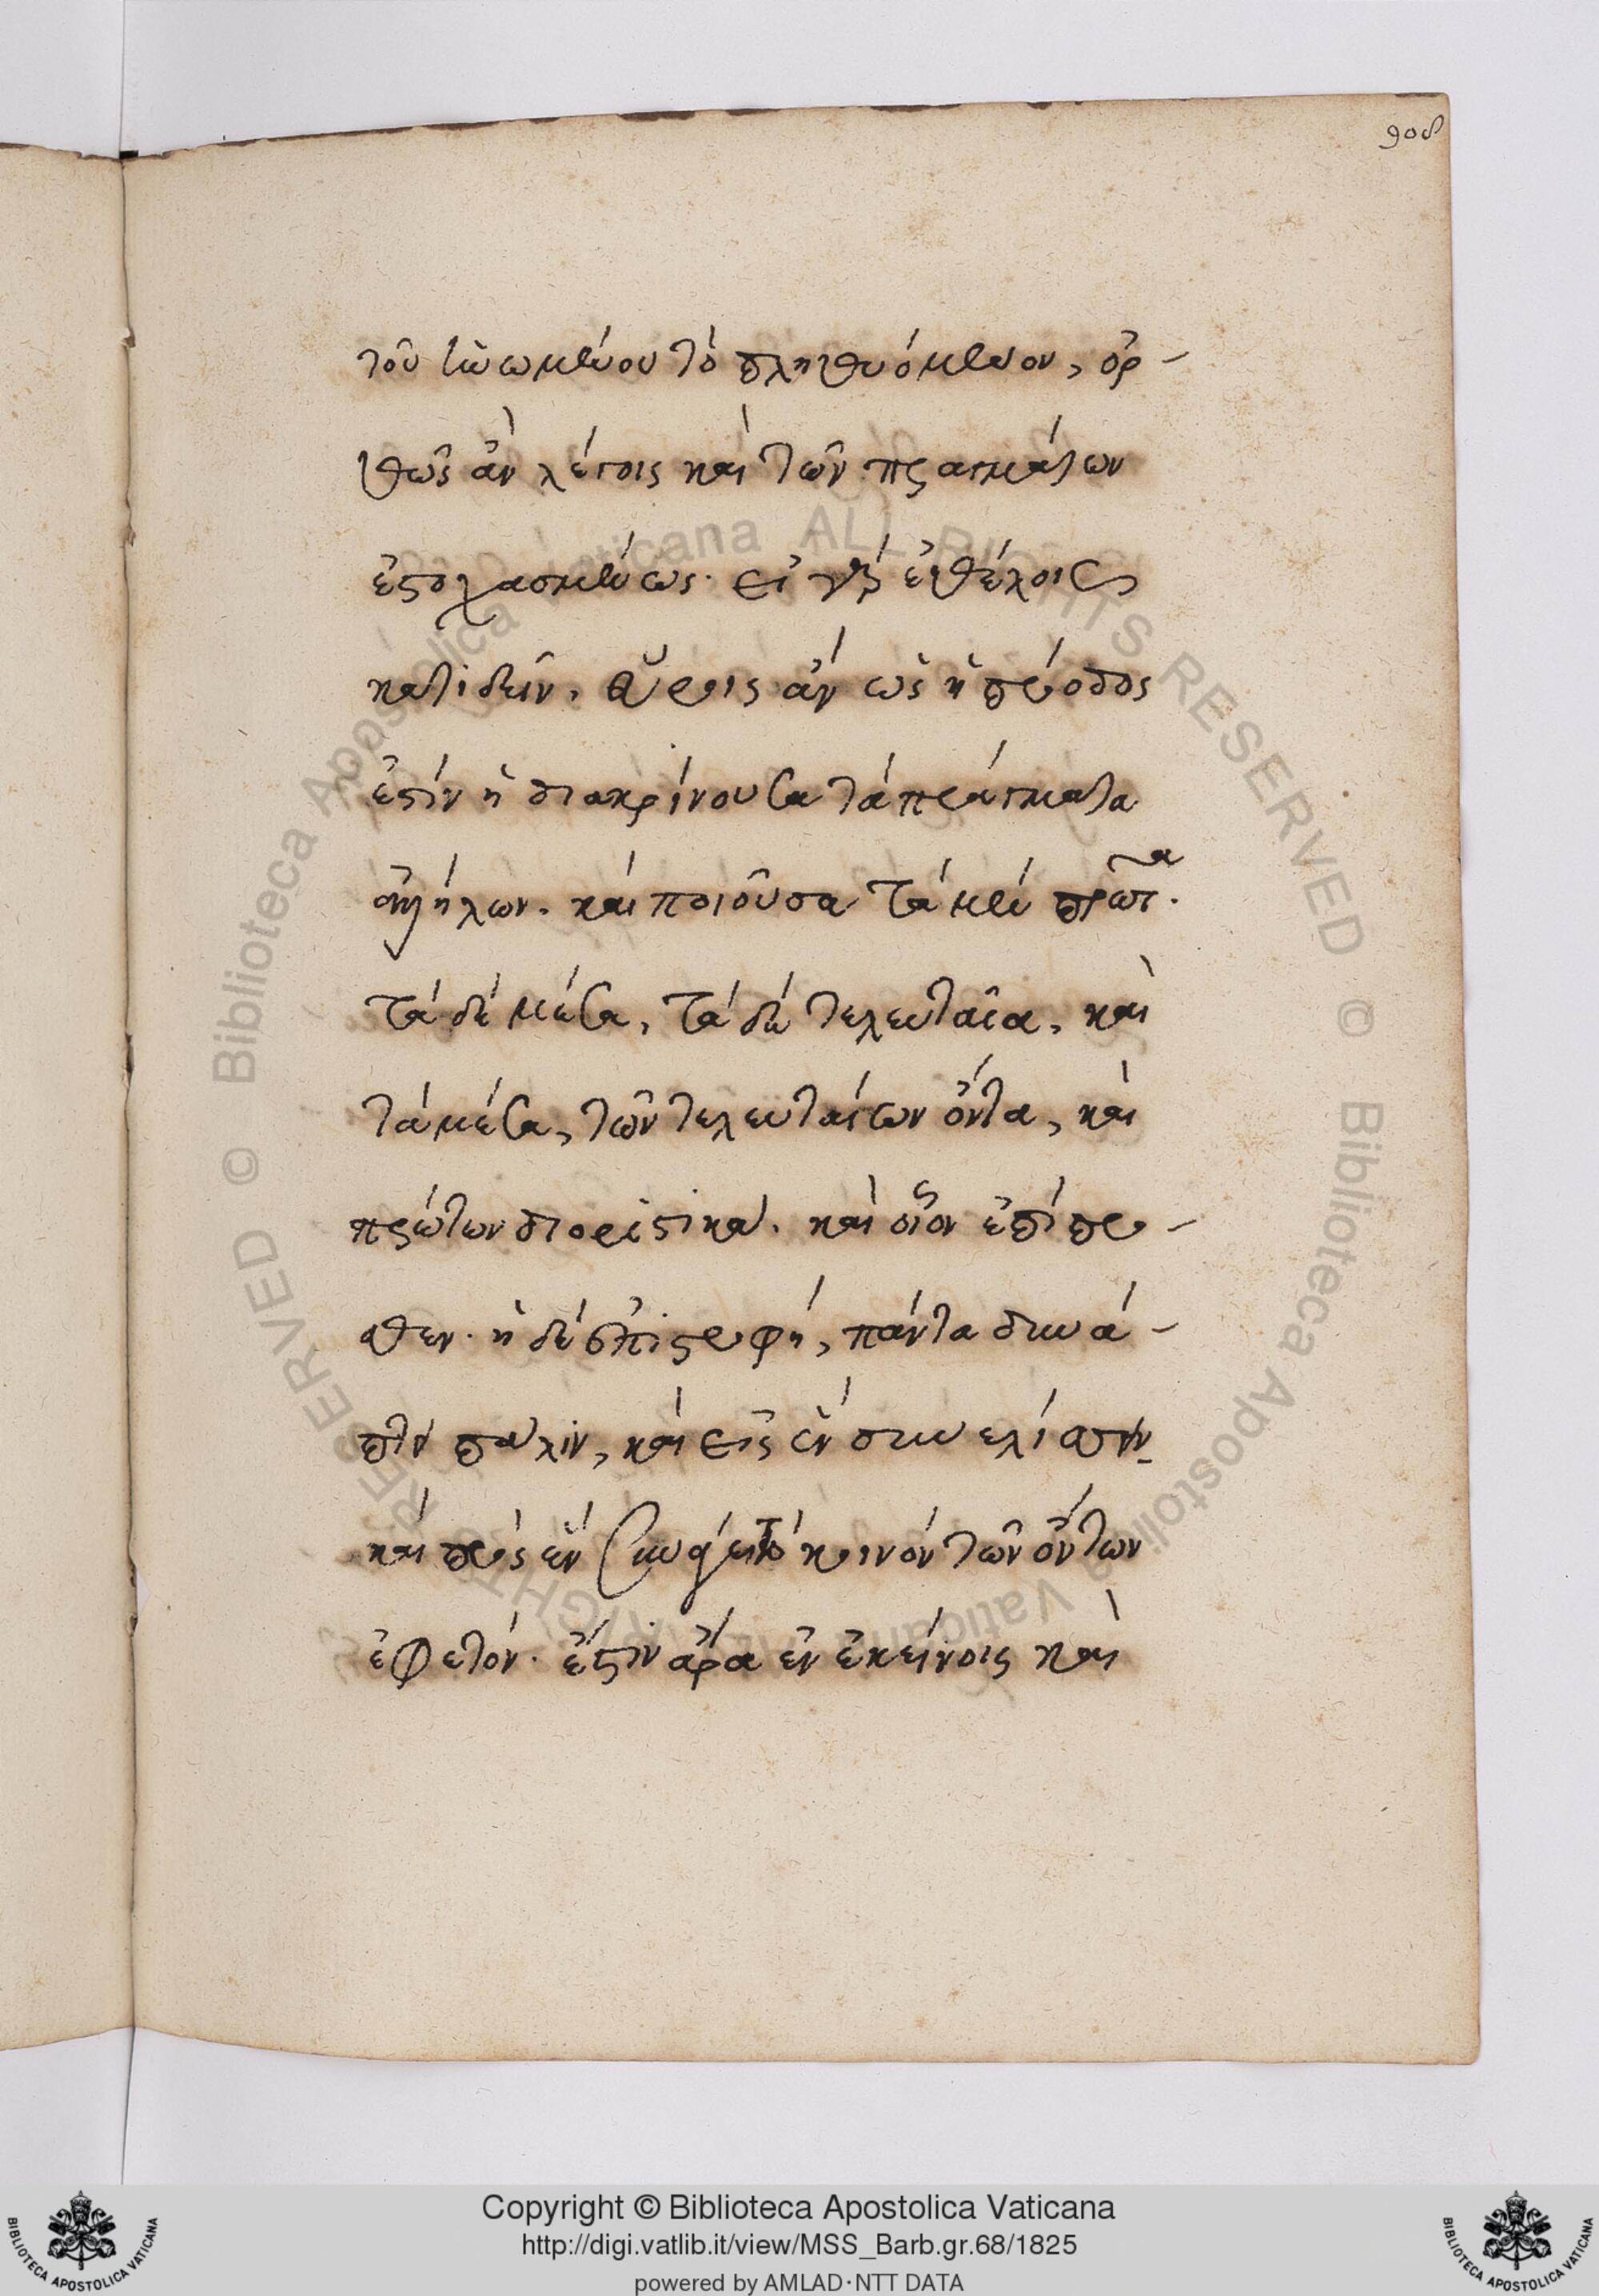 908
τοῦ ἡνωμένου τὸ πληθυόμενον, ὀρ-
θῶς ἂν λέγοις καὶ τῶν πραγμάτων
ἐστοχασμένως. εἰ γὰρ ἐθέλοις
κατιδεῖν, εὕροις ἂν ὡς ἡ πρόοδος
ἐστὶν ἡ διακρίνουσα τὰ πράγματα
ἀλλήλων. καὶ ποιοῦσα τὰ μὲν πρῶτα.
τὰ δὲ μέσα, τὰ δὲ τελευταῖα, καὶ
τὰ μέσα, τῶν τελευταίων ὄντα, καὶ
πρώτων διοριστικά. καὶ οἷον ἐπίπρο-
σθεν. ἡ δὲ ἐπιστροφή, πάντα συνά-
πτει πάλιν, καὶ εἰς ἓν συνελίσσει
καὶ πρὸς ἓν συνάγει τὸ κοινὸν τῶν ὄντων
ἐφετόν. ἔστιν ἄρα ἐν ἐκείνοις καὶ
© Biblioteca Apostolica Vaticana ALL RIGHTS RESERVED © Biblioteca Apostolica Vaticana ALL RIGHTS RESERVED
Copyright © Biblioteca Apostolica Vaticana
http://digi.vatlib.it/view/MSS_Barb.gr.68/1825
powered by AMLAD·NTT DATA
BIBLIOTECA APOSTOLICA VATICANA
BIBLIOTECA APOSTOLICA VATICANA